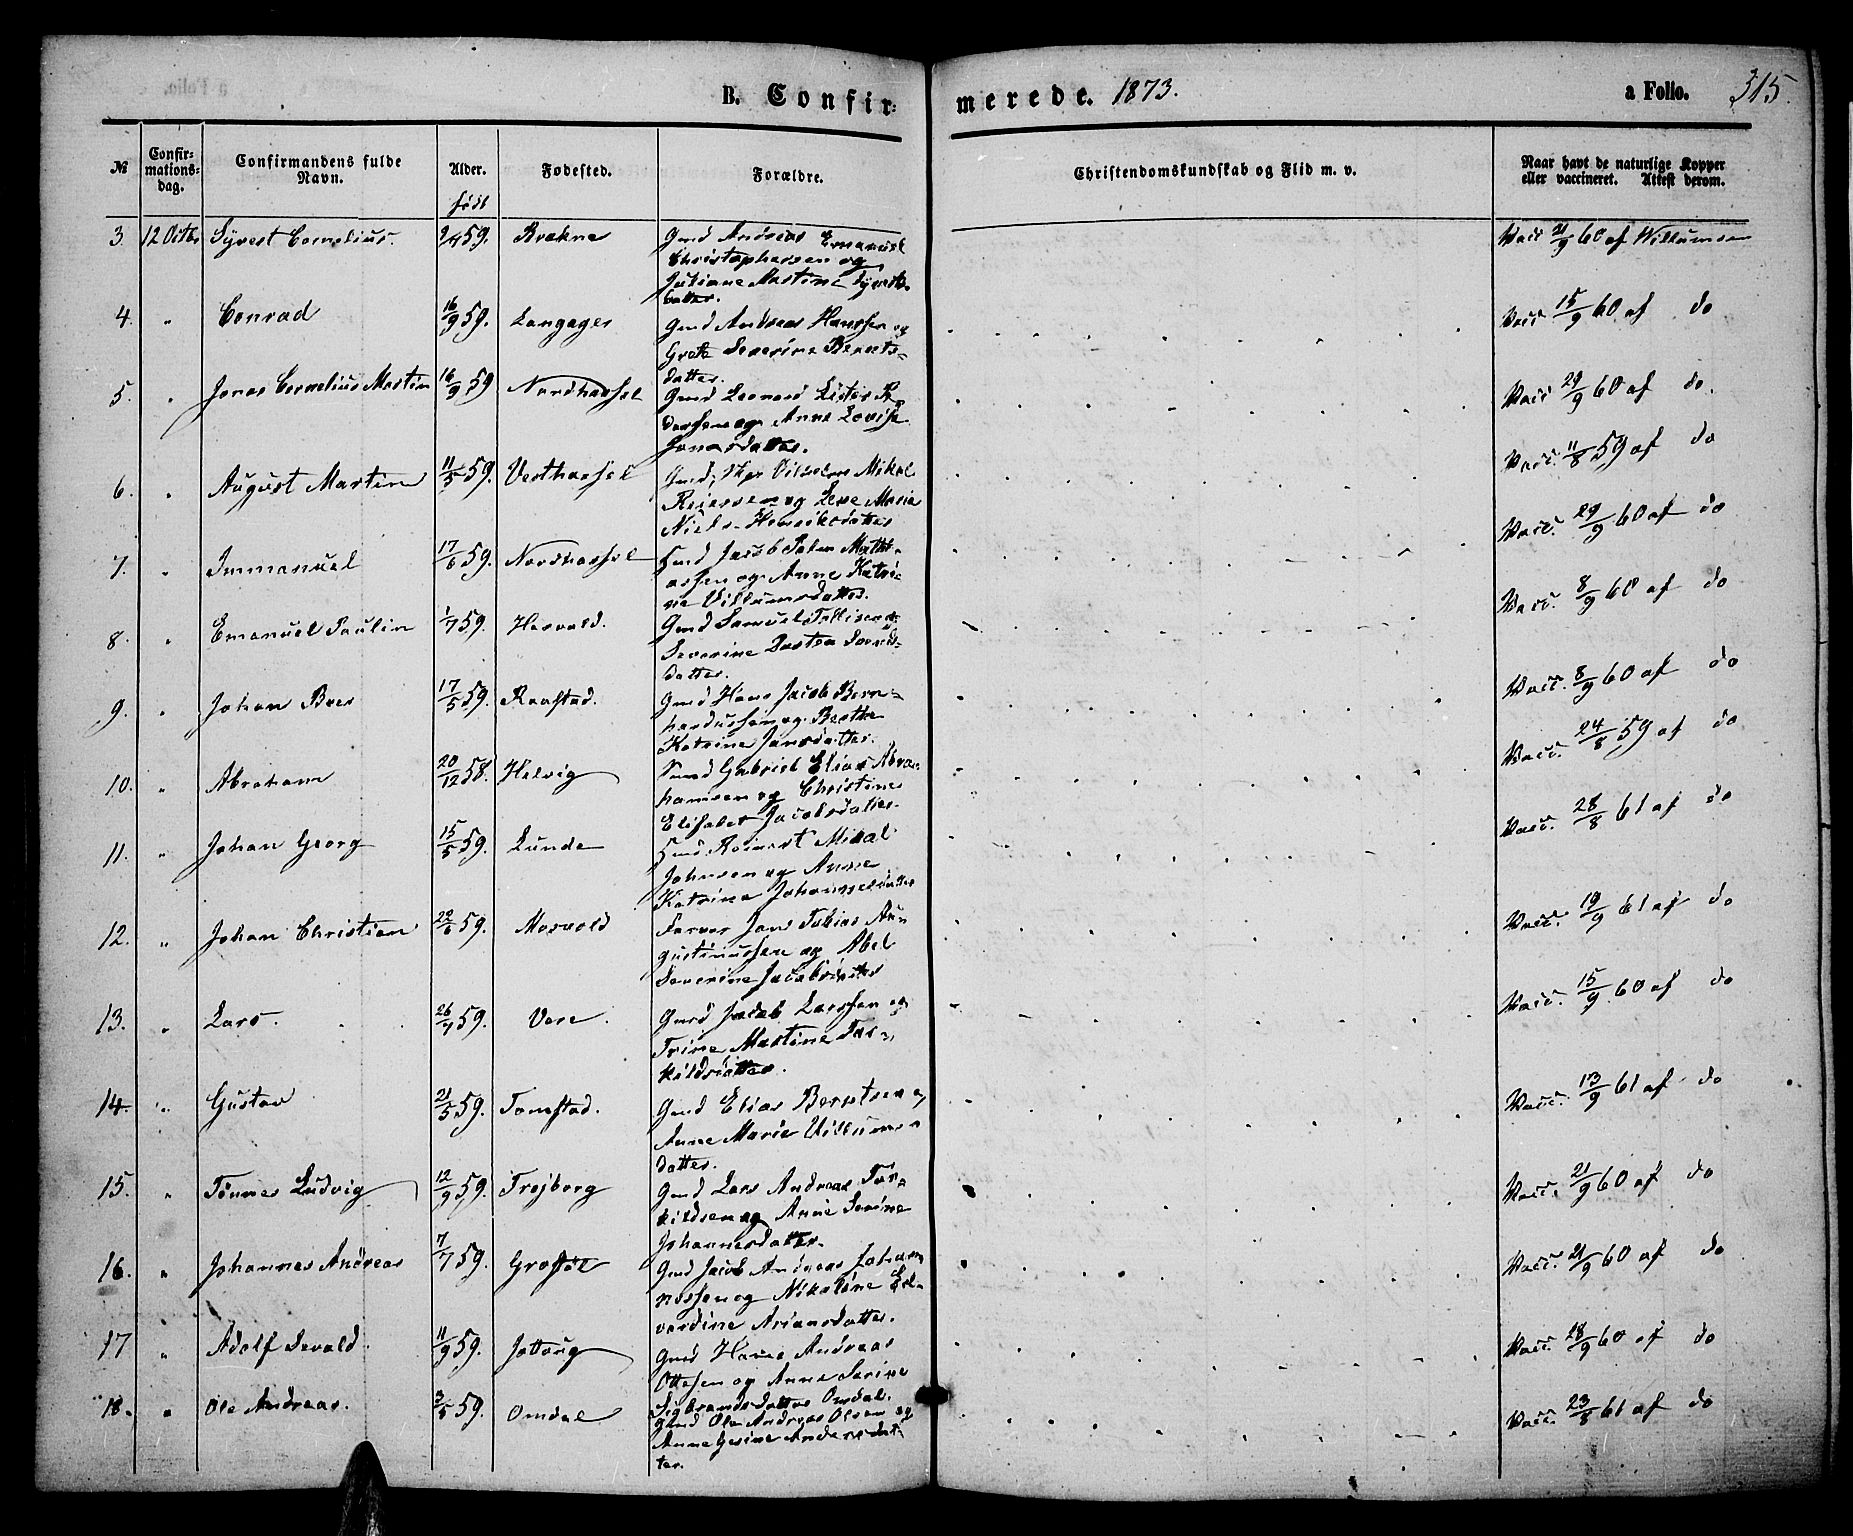 B. Confir-
merede. 1873.
a Folio. 315.
№ Confir-mations-dag. Confirmandens fulde Navn. Alder. født Fødested. Forældre. Christendomskundskab og Flid m. v. Naar havt de naturlige Kopper eller vaccineret. Attest derom.
3. 12 Octbr Syvert Cornelius. 9/4 59. Brekne Gmd Andreas Emanuel
Christophersen og
Juliane Martine Syverts-
datter.
Vacc 21/9 60 af Willumsen
4. " Conrad 16/9 59. Langager Gmd Andreas Hanssen og
Grete Severine Berents-
datter.
Vacc 15/9 60 af do
5. " Jonas Cornelius Martin 16/9 59 Nordhassel Gmd Leonard Lister
Anne Lovise
Jonasdatter.
Vacc 29/9 60 af do.
6. " August Martin 11/5 59. Vesthassel Gmd, Mikal
Reiersen og Lene Maria
Niels Henriksdatter
Vacc. 11/8 59 af do
7. " Immanuel 17/6 59. Nordhassel Gmd Jacob Salm Math-
assen og Anne Katri-
ne Villumsdatter.
Vacc. 29/9 60 af do
8. " Emanuel Paulin 1/7 59. Hervold. Gmd Samuel Tollisen og
Severine
datter.
Vacc. 8/9 60 af do
9. " Johan Brer 17/5 59. Ravstad. Gmd Hans Jacob Bern-
hardussen og Berthe
Katrine Jansdatter.
Vacc. 8/9 60 af do
10. " Abraham 20/12 58. Helvig Gmd Gabriel Elias Abra-
hamsen og Christine
Elisabet Jacobsdatter.
Vacc. 24/8 59 af do
11. " Johan Georg 15/5 59. Lunde Gmd Reinert Mikal
Johnsen og Anne
Katrine Johannesdatter
Vacc. 28/8 61 af do
12. " Johan Christian 22/6 59. Morvold Farver Jan Tobias Au-
gustinussen og Abel
Severine Jacobsdatter
Vacc. 19/9 61 af do
13. " Lars. 26/7 59. Vere. Gmd Jacob Larssen og
Trine Martine Tar-
kildsdatter.
Vacc. 15/9 60 af do
14. " Gustav 21/5 59. Tomstad. Gmd Elias Berntsen og
Anne Marie Villums-
datter.
Vacc. 13/9 61 af do
15. " Tønnes Ludvig 12/9 59. Trejborg Gmd Lars Andreas Tar-
kildsen og Anne Serine
Johannesdatter.
Vacc. 21/9 60 af do
16. " Johannes Andreas 7/7 59. Grøføl Gmd Jacob Andreas Johan-
nessen og Nikoline Ed-
vardine Ariansdatter.
Vacc. 21/9 60 af do
17 " Adolf Sevald. 11/9 59. Jøllong Gmd Hans Andreas
Ottesen og Anne Serine
Sigbrandsdatter Omdal.
Vacc. 28/9 60 af do
18. " Ole Andreas. 3/5 59. Omdal Gmd Ole Andreas Olsen og
Anne Gesine Andersdat-
ter.
Vacc. 23/8 61 af do